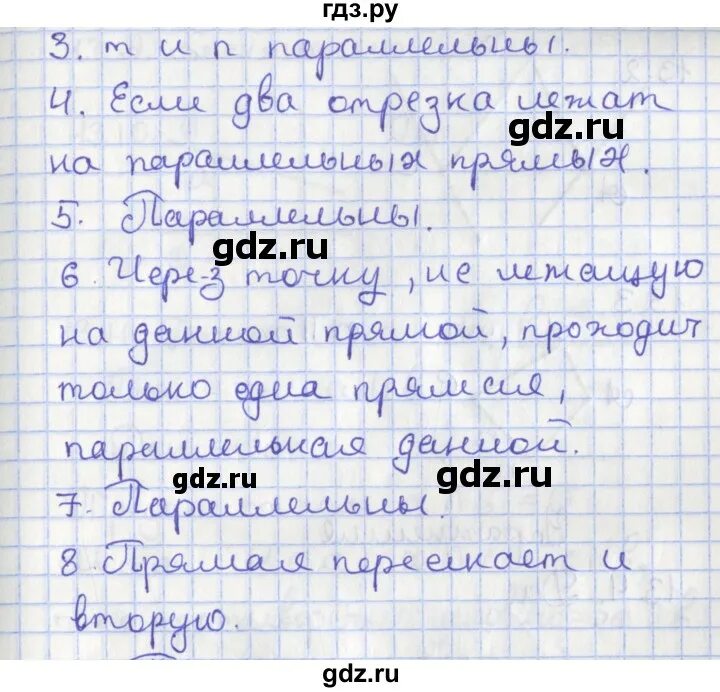 гдз.ру
3. m и n параллельны.
4. Если два отрезка лежат
gdz.ru
на параллельных прямых.
5. Параллельны.
gdz.ru
6. Через точку, не лежащую
на данной прямой, проходит
только одна прямая,
параллельная данной.
gdz.ru
gdz.ru
7. Параллельны.
8. Прямая пересекает и
вторую.
gdz.ru